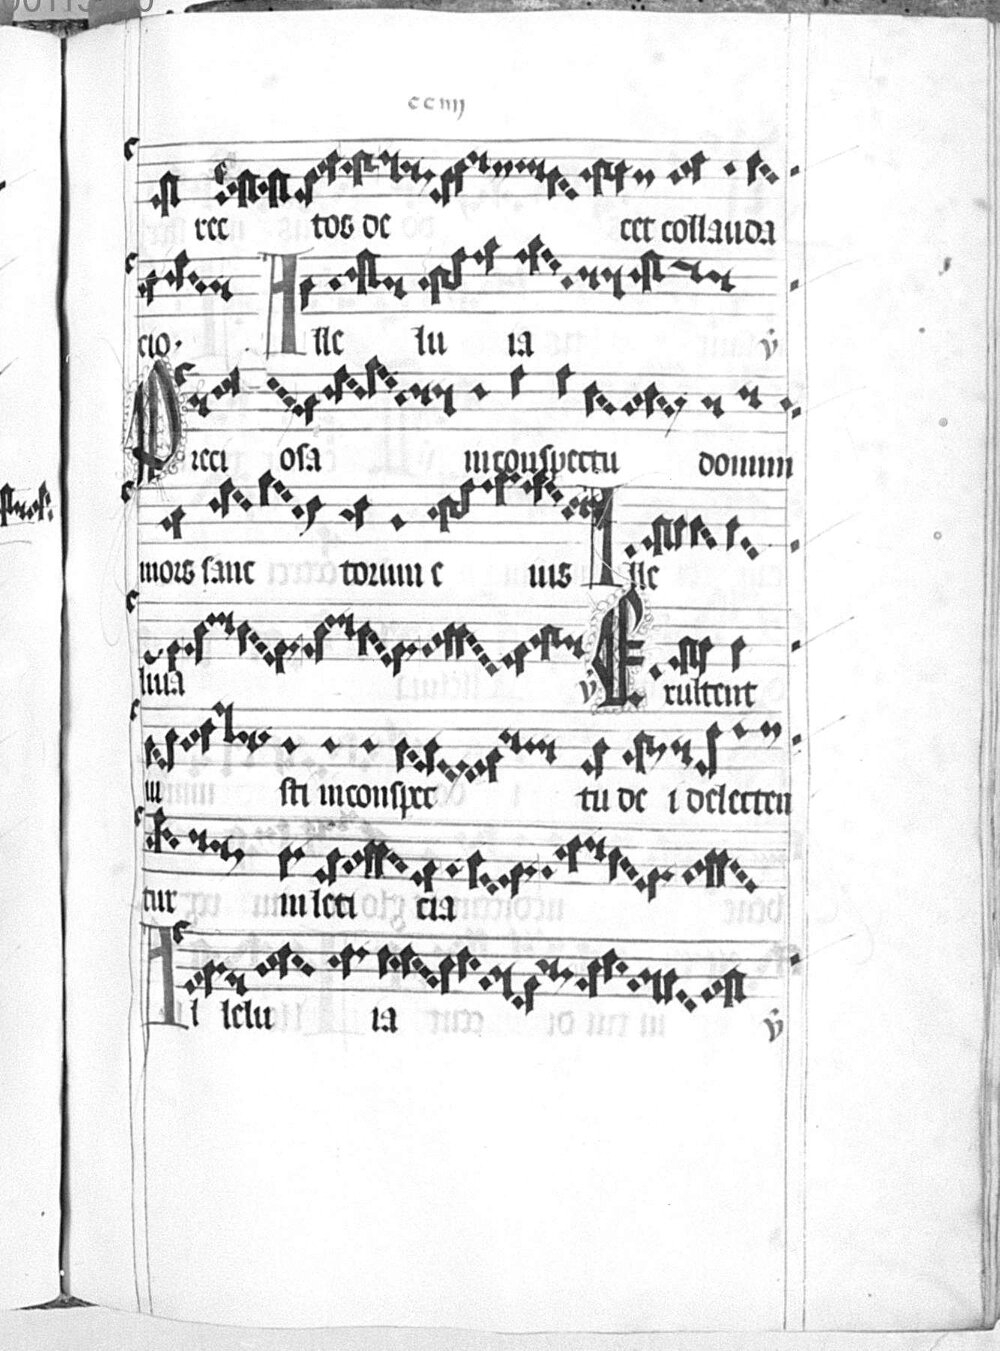 cciiij
rec tos de cet collauda
cio. Alle lu ia ṽ
Preci osa in conspectu domini
mors sanc torum e ius Alle
luia ṽ Exultent
iu sti in conspec tu de i delecten
tur in leti cia
Al lelu ia ṽ